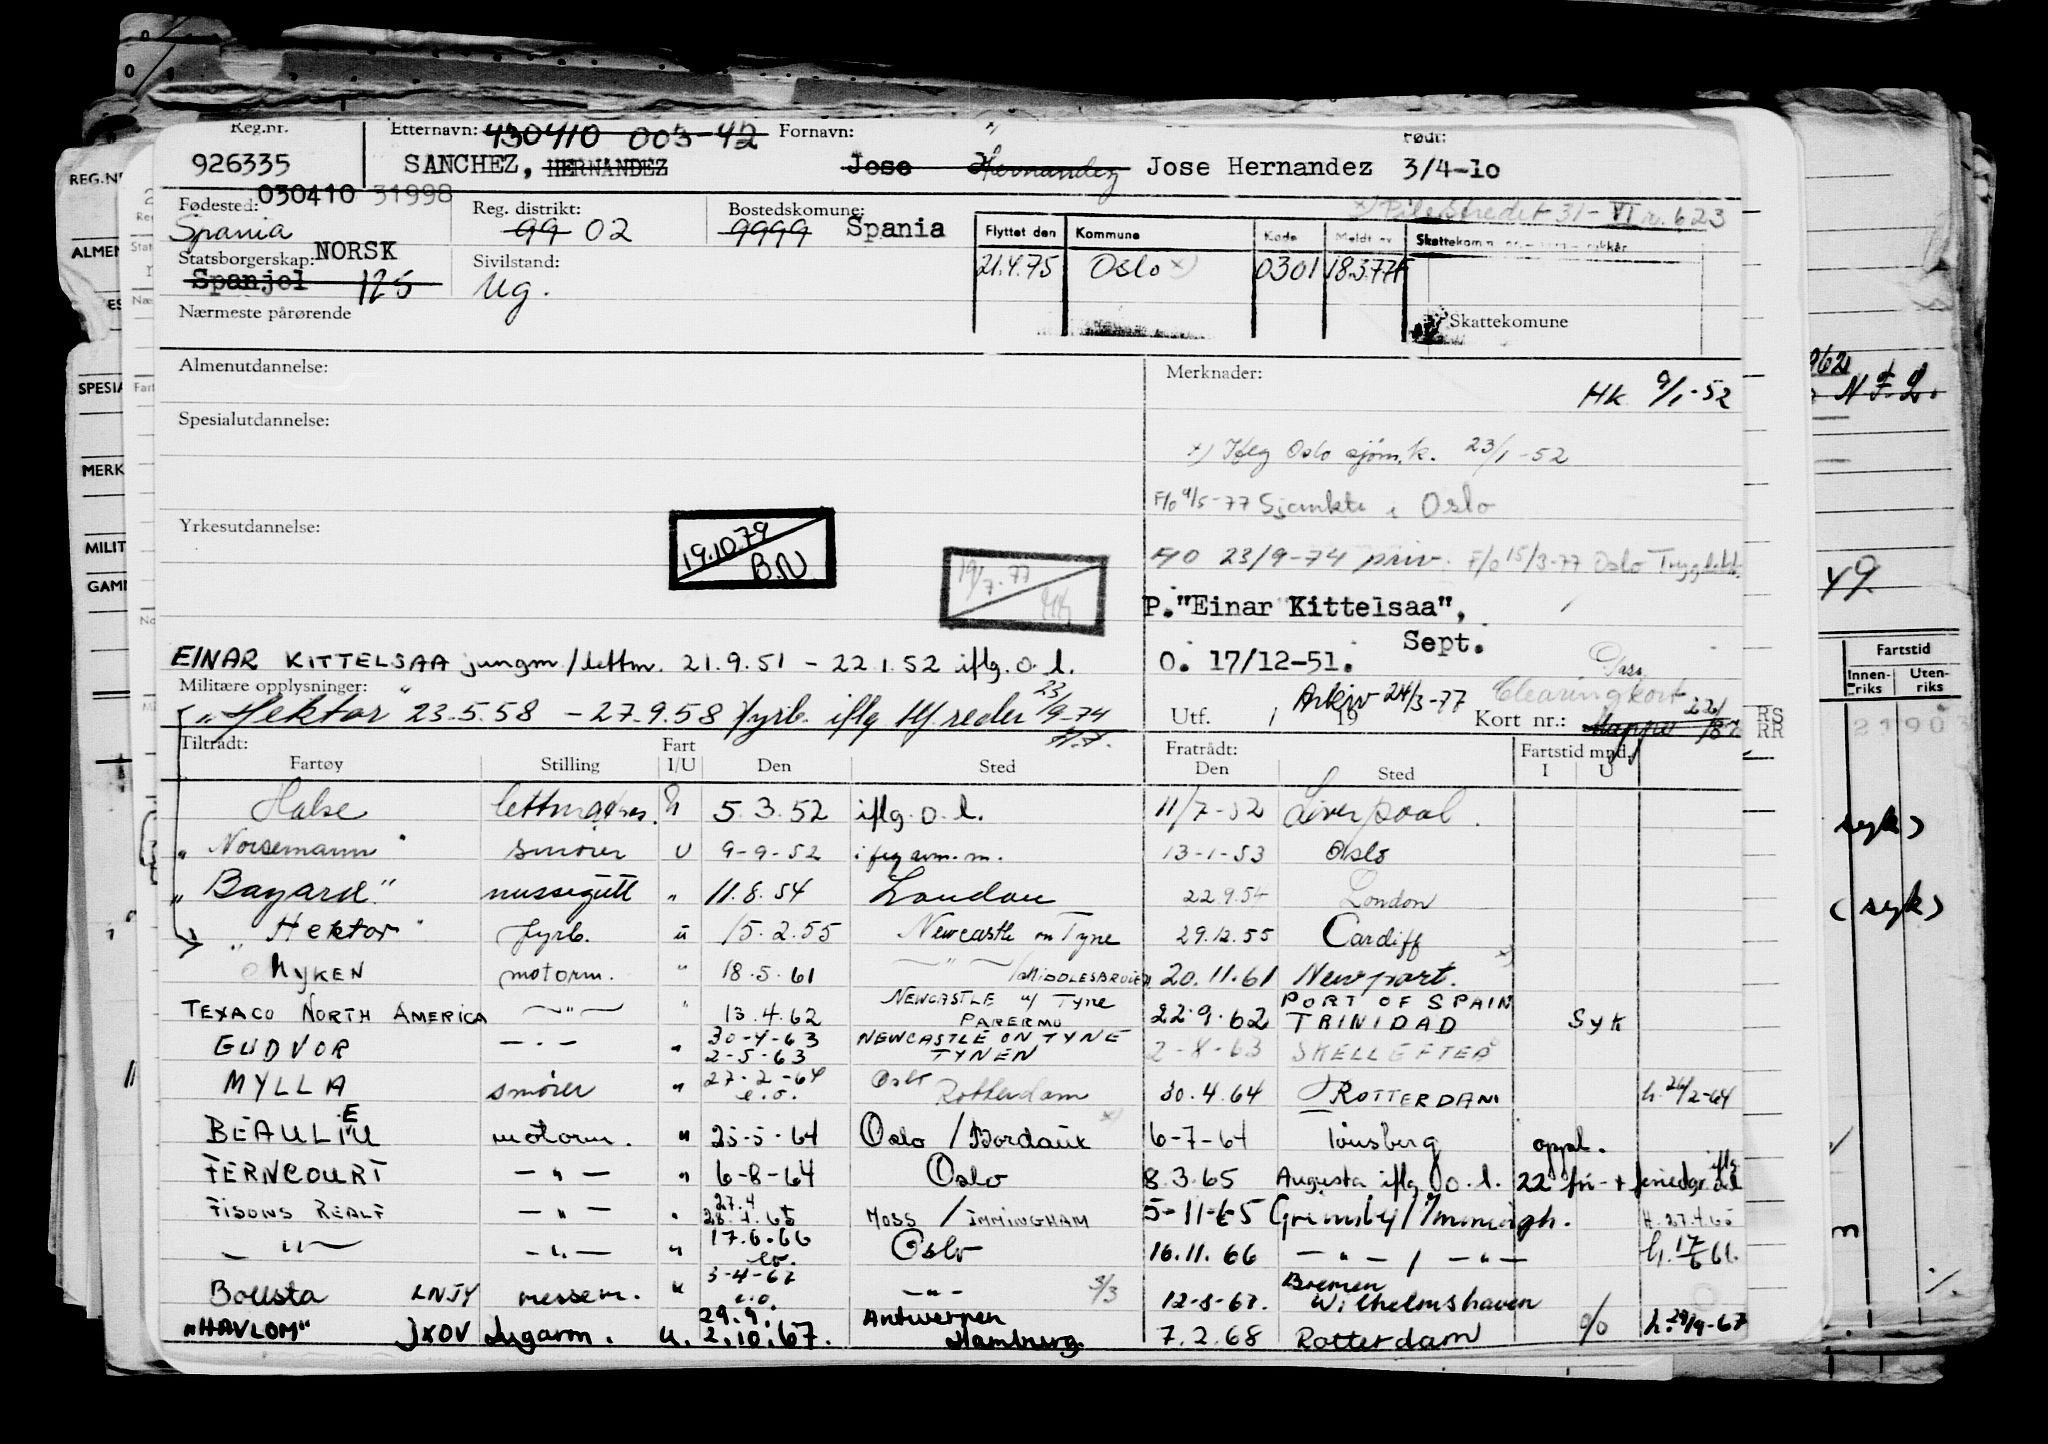 Reg.nr. Etternavn: 430410 005-42 Fornavn: Født:
926335 SANCHEZ, HERNANDEZ Jose Hernandez Jose Hernandez 3/4-10
030410 31998
Fødested: Reg. distrikt: Bostedskomune: x) Pilestredet 31 - VI r. 623
Spania 99 02 9999 Spania
Flyttet den Kommune Kode Meldt av
Statsborgerskap: NORSK Sivilstand:
Spanjol 125 ug. 21.4.75 Oslo x) 0301 18.3.77F
Nærmeste pårørende Skattekomune
Almenutdannelse: Merknader:
Hk 9/1-52
Spesialutdannelse:
x) Iflg Oslo sjøm.k. 23/1-52
F/o 9/5-77 Sjømktr i Oslo
Yrkesutdannelse:
19.10.79
B.N
19/7.77
F/O 23/9-74 priv. F/o 15/3-77 Oslo
P. "Einar Kittelsaa",
Sept.
O. 17/12-51.
EINAR KITTELSAA jungm/lettm. 21.9.51 - 22.1.52 iflg. o. l.
Militære opplysninger:
Arkiv 24/3-77 Clearingkort
"Hektor" 23.5.58 - 27.9.58 fyrb. iflg 23/9-74
Utf. / 19 Kort nr.: Mappe
RS
RR
Tiltrådt: Fart Fratrådt: Fartstid mnd.
Fartøy Stilling I/U Den Sted Den Sted I U
Halse 5.3.52 iflg. o. l. 11/7-52 Liverpool
"Norsemann" smører U 9-9-52 13-1-53 Oslo
"Bayard" messegutt " 11.8.54 London 22.9.54 London
"Hektor" fyrb. u 15.2.55 Newcastle on Tyne 29.12.55 Cardiff
MYKEN motorm. " 18.5.61 — " — 20.11.61 Newport.
TEXACO NORTH AMERICA — " — " 13.4.62 NEWCASTLE u/ Tyne 22.9.62 PORT OF SPAIN TRINIDAD SYK
GUDVOR — " — " 30-4-63 2-5-63 NEWCASTLE ON TYNE TYNEN SKELLEFTEÅ
MYLLA smører " 27-2-64 e.o. Oslo Rotterdam 30.4.64 ROTTERDAM h. 26/2-64
BEAULIEU motorm. " 25-5-64 Oslo / Bordaux 6-7-64 Tønsberg oppl.
FERNCOURT — " — " 6-8-64 Oslo 8.3.65 Augusta iflg. o. l. 22 fri- +
FISONS — " — " 27.4 28.4.65 MOSS / IMMINGHAM 5-11-65 H. 27.4.65
— " — — " — " 17.6.66 Oslo 16.11.66 — " — / — " — h. 17/6 66.
Bollsta LNJY messem. " 3-4-67 e.o — " — 12-8-67. Bremen Wilhelmshaven
"HAVLOM" JXOV Lugarm. u. 29.9. 2.10.67. Antwerpen Hamburg. 7.2.68 Rotterdam h. 29/9-67
REG.NR
ALMEN
SPESIA
MERK
MILIT
GAMM
Fartstid
Innen-riks Uten-riks
49.
syk)
(syk)